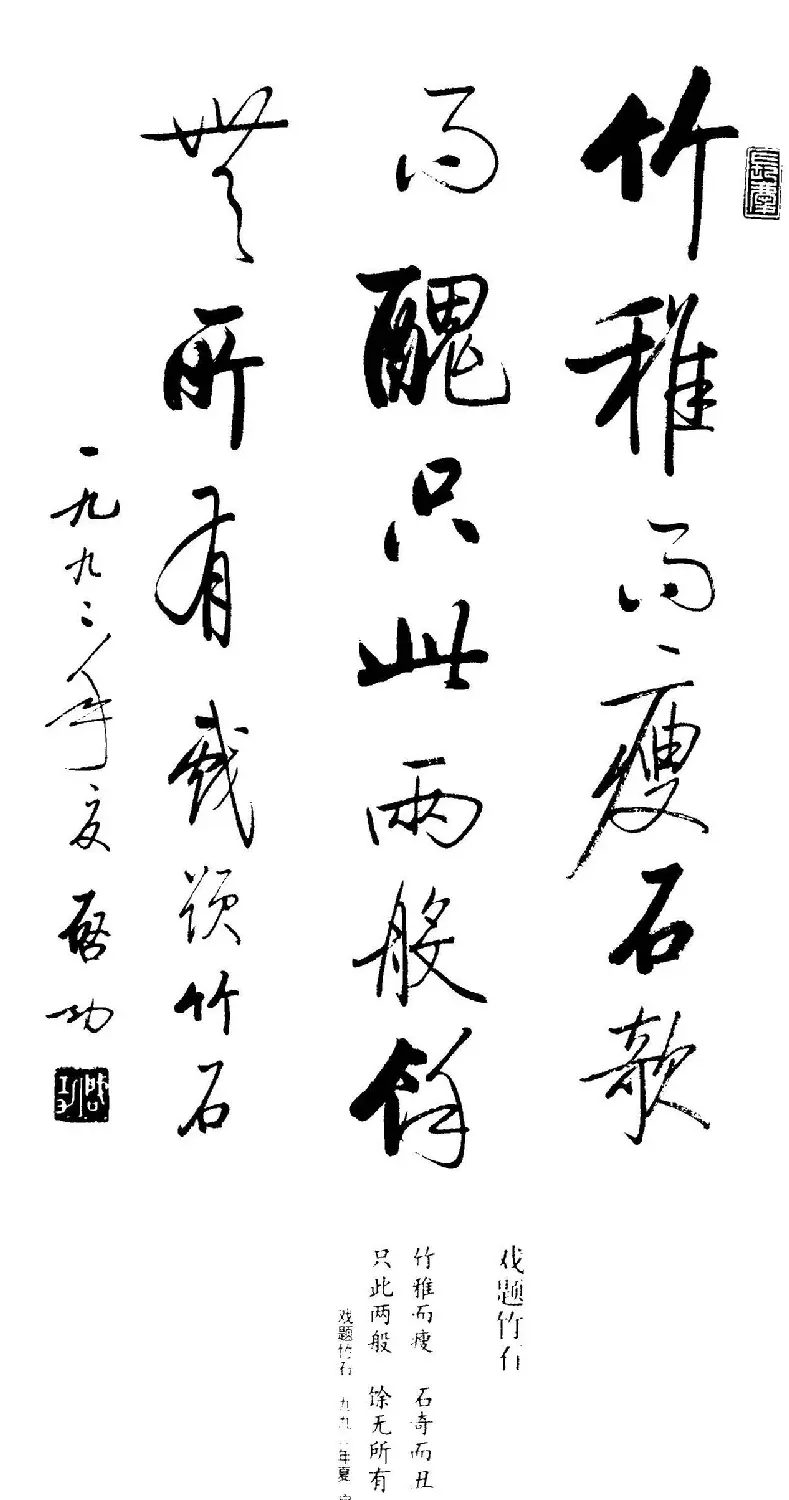 竹稚而瘦石欹
而醜只此兩般餘
無所有戲題竹石
一九九二年夏啓功
戏题竹石
竹稚而瘦 石奇而丑
只此两般 馀无所有
戏题竹石 九九 年夏